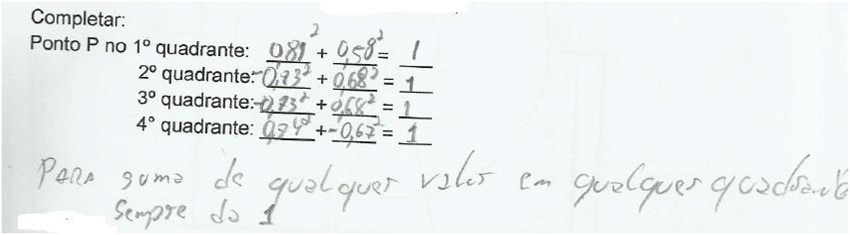 Completar:
Ponto P no 1º quadrante: 0,81² + 0,58² = 1
2º quadrante: -0,73² + 0,68² = 1
3º quadrante: -0,73² + 0,68² = 1
4° quadrante: 0,74² + -0,67² = 1
PARA soma de qualquer valor em qualquer quadrante
Sempre da 1